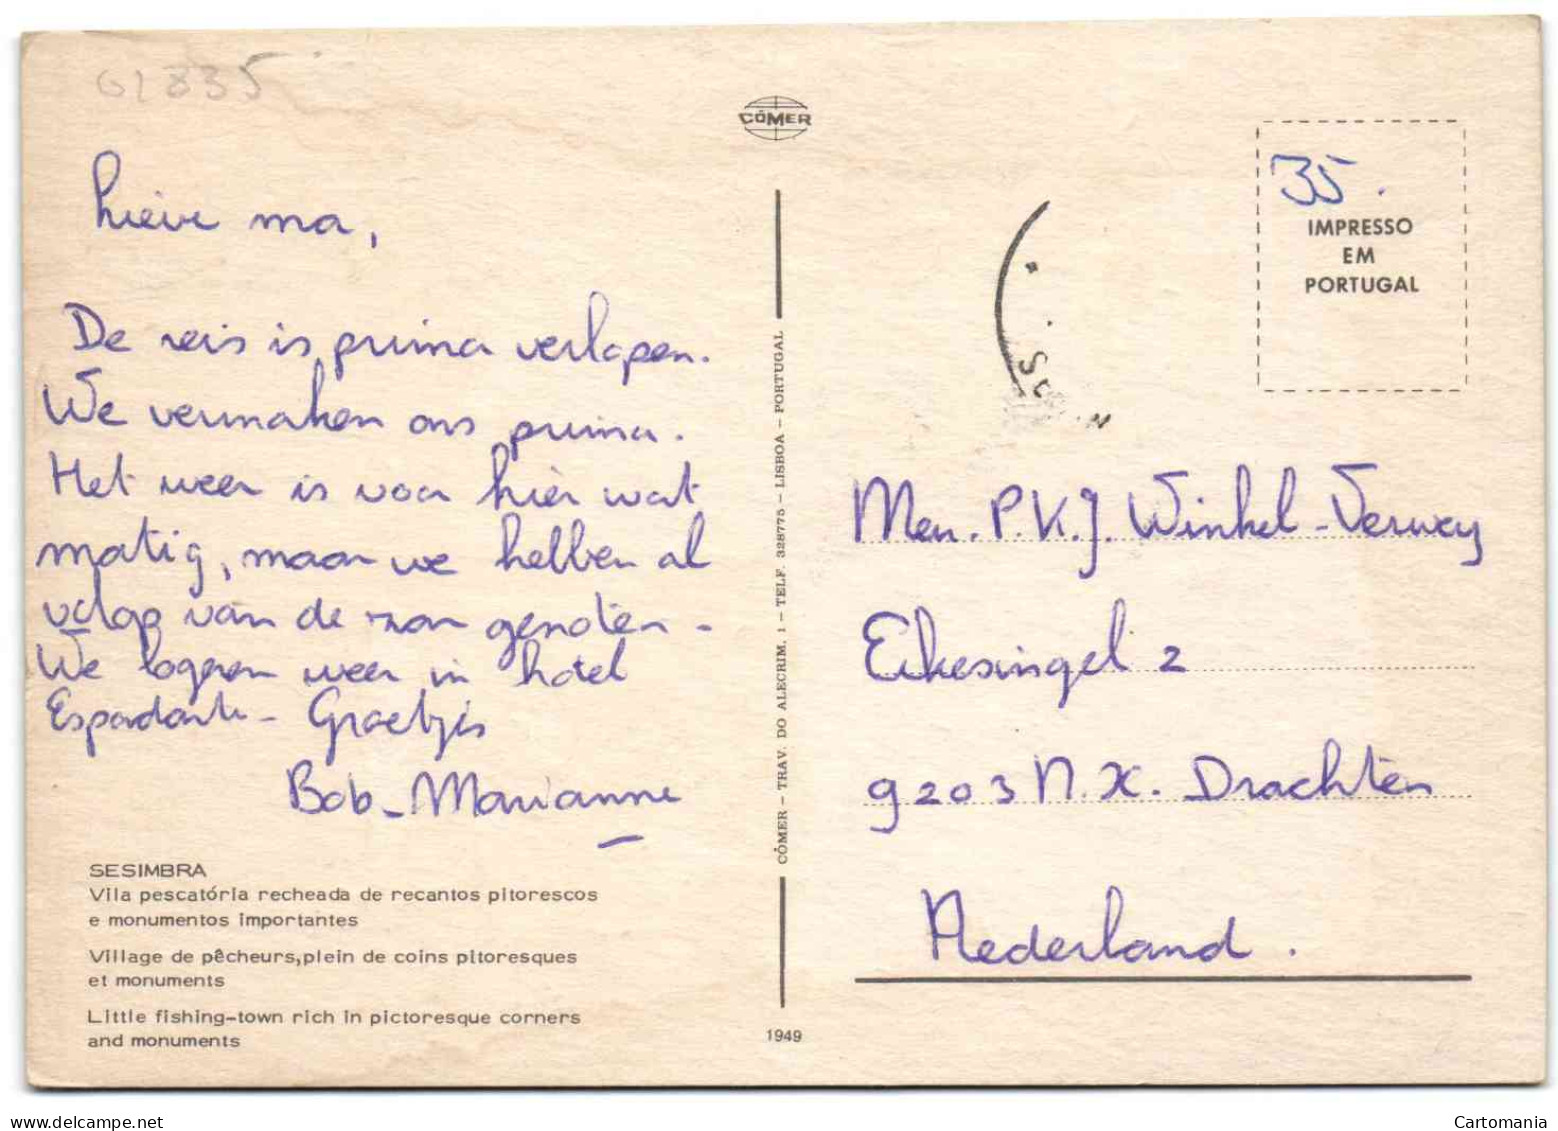 61835
CÓMER
lieve ma,
De reis is prima verlopen.
We vermaken ons prima.
Het weer is voor hier wat
matig, maar we hebben al
volop van de zon genoten -
We logeren weer in hotel
Espadarte - Groetjes
Bob - Marianne
SESIMBRA
Vila pescatória recheada de recantos pitorescos
e monumentos importantes
Village de pêcheurs,plein de coins pitoresques
et monuments
Little fishing-town rich in pictoresque corners
and monuments
CÓMER - TRAV. DO ALECRIM, 1 - TELF. 328775 - LISBOA - PORTUGAL
1949
35.
IMPRESSO
EM
PORTUGAL
Mev. P.K.J. Winkel-Verwey
Eikesingel 2
9203 N.X. Drachten
Nederland.
www.delcampe.net
Cartomania